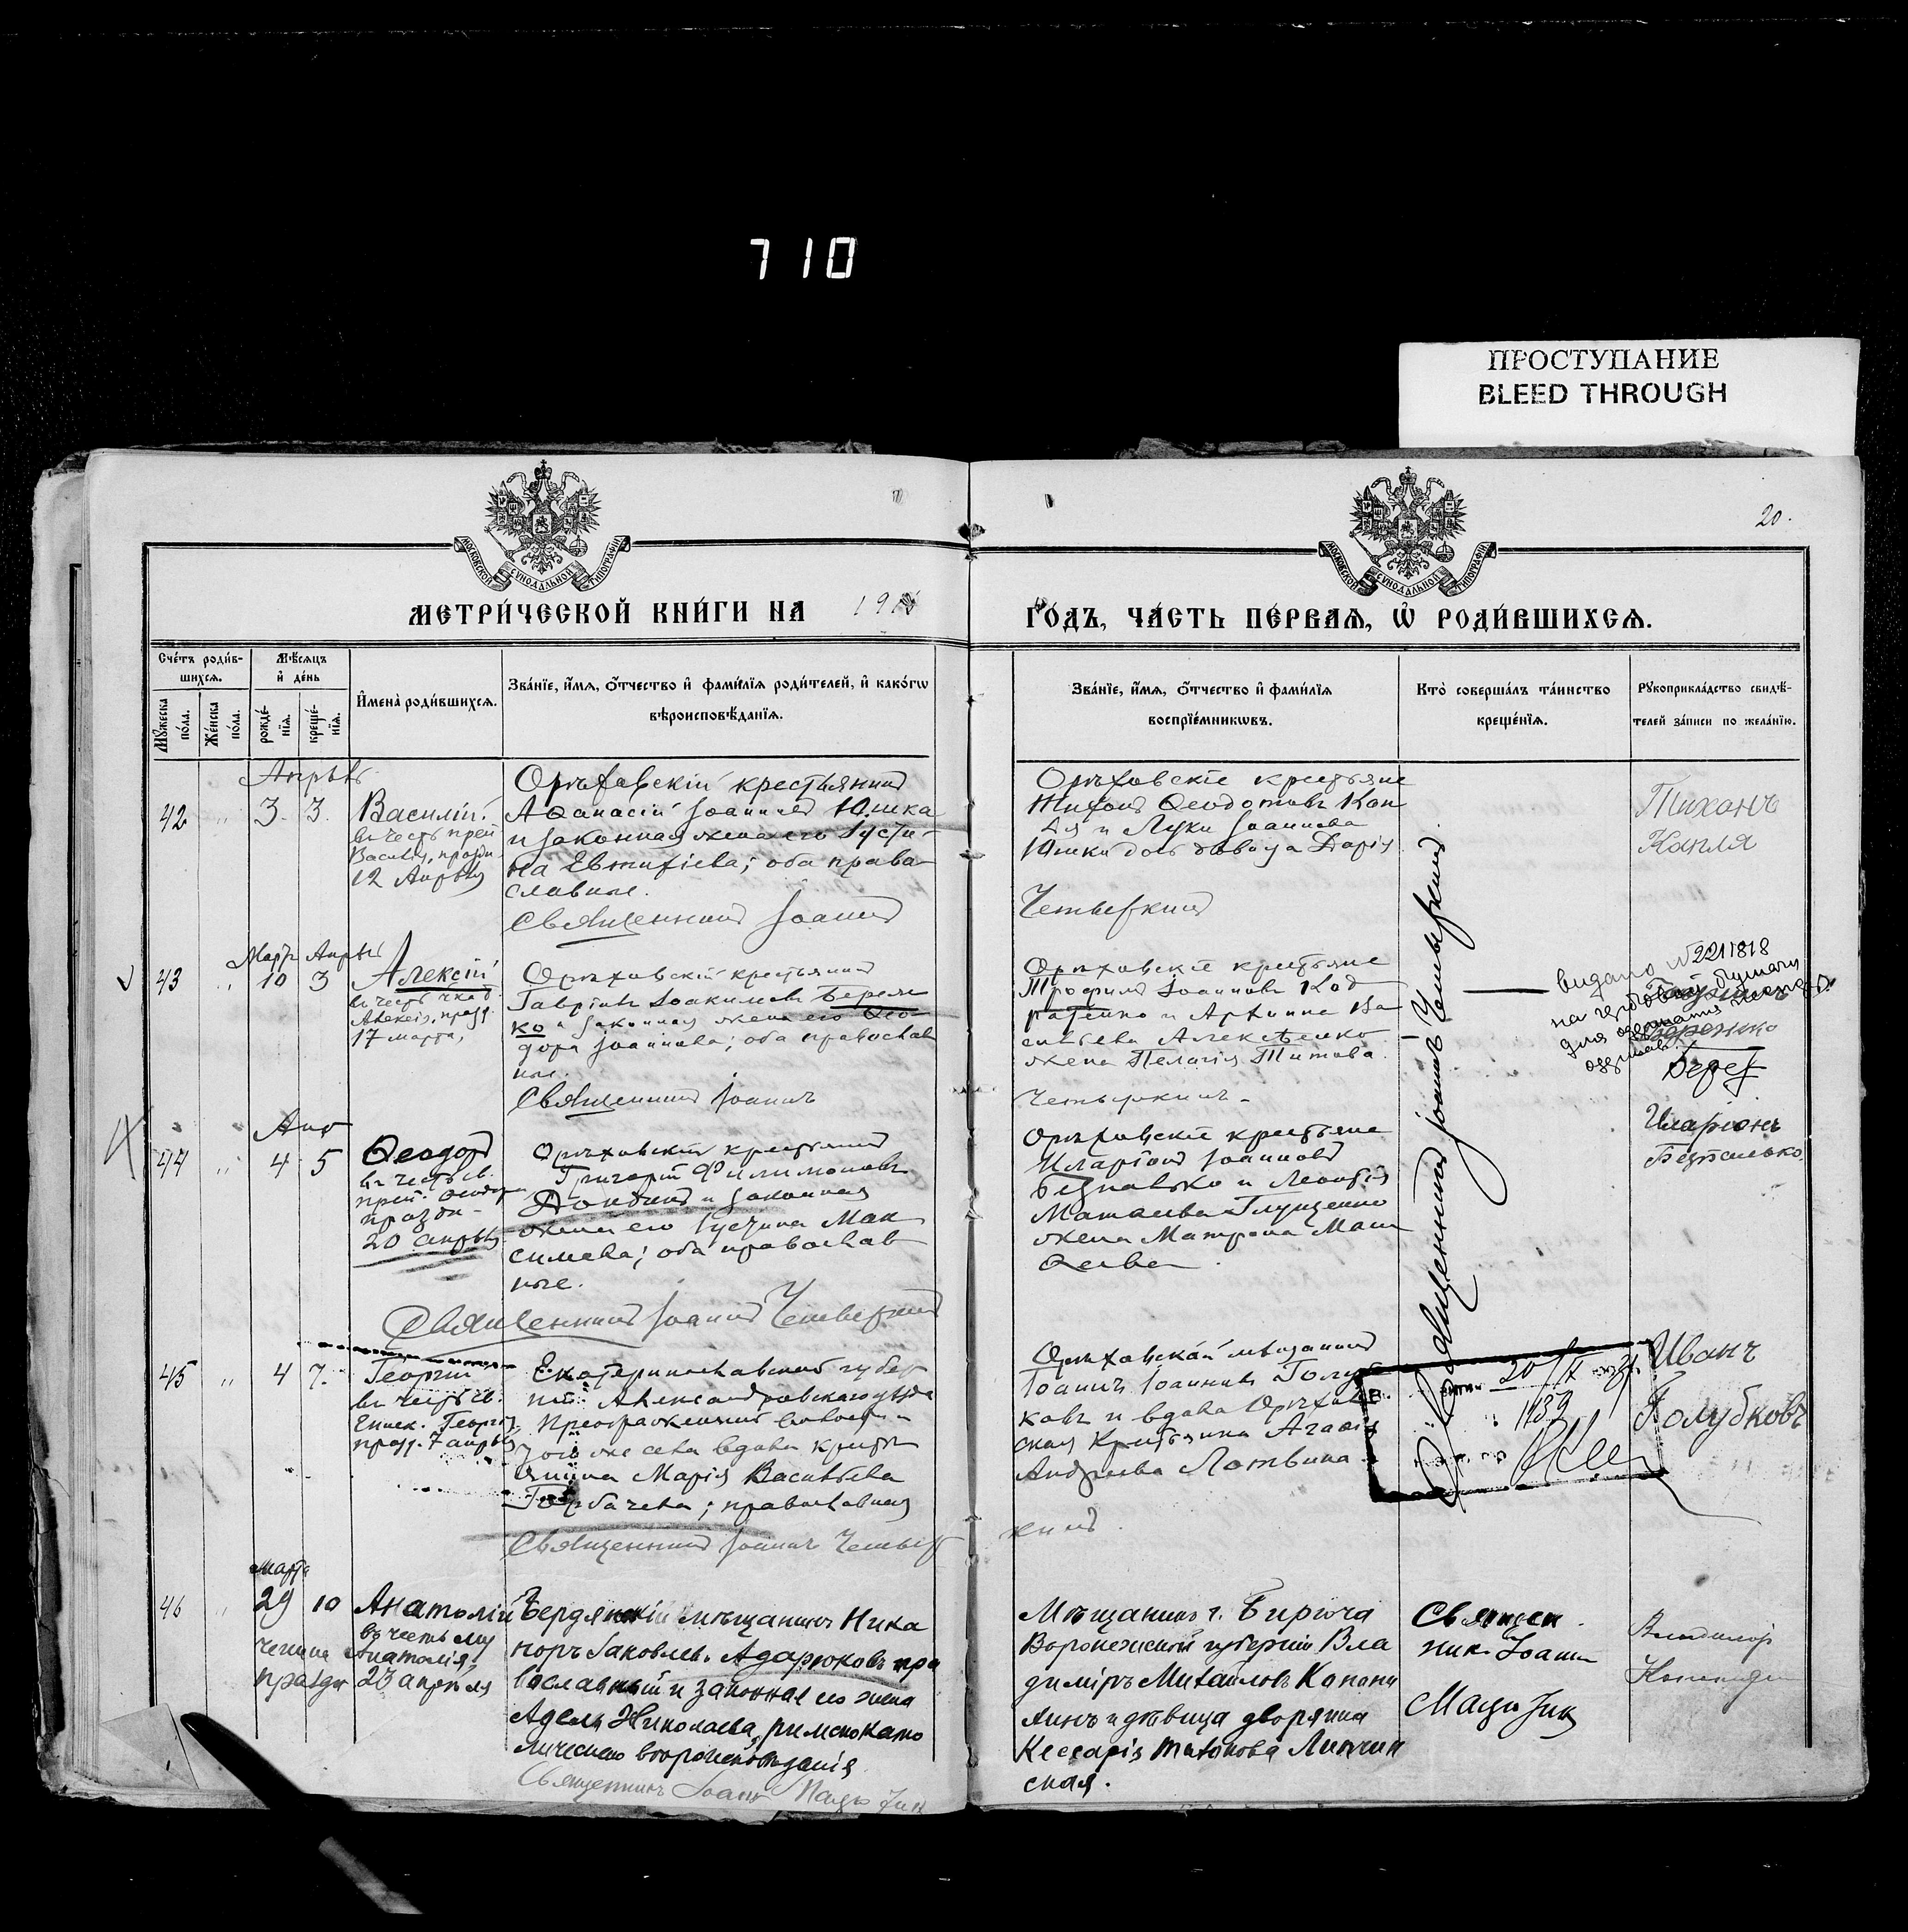 710
ПРОСТУПАНИЕ
BLEED THROUGH
20.
МОСКОВСКОЙ СУНОДАЛЬНОЙ ТИПОГРАФІИ
МОСКОВСКОЙ СУНОДАЛЬНОЙ ТИПОГРАФІИ
МЕТРИ́ЧЕСКОЙ КНИ́ГИ НА 191
ГО́ДЪ, ЧА́СТЬ ПЕ́РВАЯ, Ѿ РОДИ́ВШИХСЯ.
Сче́тъ роди́в-
шихся.
Мѣ́сяцъ
и де́нь
Му́жеска
по́ла.
Же́нска
по́ла.
рожде́-
нїя.
креще́-
нїя.
Имена̀ роди́вшихся.
Зва́нїе, и́мя, о́тчество и фами́лїя роди́телей, и како́гѡ
вѣроисповѣ́данїя.
Зва́нїе, и́мя, о́тчество и фами́лїя
воспрїе́мникѡвъ.
Кто̀ соверша́лъ та́инство
креще́нїя.
Рукоприкла́дство свидѣ́-
телей за́писи по жела́нїю.
Апрѣль
42 " 3. 3.
Василій
въ честь преп
Василія, праздн.
12 Апрѣля
Орѣховскій крестьянинъ
Аѳанасій Іоанновъ Юшка
и законная жена его Іусти-
на Евтихіева; оба право-
славные.
Священникъ Іоаннъ
Орѣховскіе крестьяне
Тихонъ Ѳеодотовъ Кап
ля и Луки Іоаннова
Юшки дочь дѣвица Дарія
Четыркинъ
Тихонъ
Капля
Мартъ Апрѣль
43 " 10 3
Алексій
въ честь
Алексія, празд.
17 марта,
Орѣховскій крестьянинъ
Гавріилъ Іоакимовъ Береж
ко и законная жена его Ѳео-
дора Іоаннова; оба православ
ные.
Священникъ Іоаннъ
Орѣховскіе крестьяне
Трофимъ Іоанновъ Код
ратенко и Архиппа Ва
сильева Алексѣенко
жена Пелагія Титова.
Четыркинъ
видано №2211818
на гербовой бумаги
для
Апр
44 " 4 5
Ѳеодоръ
въ честь
преп. Ѳеодора
праздн-
20 апрѣля
Орѣховскій крестьянинъ
Григорій Филимоновъ
Дондинъ и законная
жена его Іустина Мак
симова; оба православ
ные.
Священникъ Іоаннъ Четыркинъ
Орѣховскіе крестьяне
Иларіонъ Іоанновъ
Безпалько и Леонтія
Матвѣева Глущенко
жена Матрона Мат
ѳеева
Иларіонъ
Безпалько
Священникъ Іоаннъ Четыркинъ
45 " 4 7.
Георгій
въ честь св.
Еписк. Георгія,
празд. 7 апрѣля
Екатеринославской губер
ніи Александровскаго уѣзда
Преображенской волости и
того же села вдова кресть
янина Марія Васильева
Горбачева; православная
Священникъ Іоаннъ Четыр
Орѣховской мѣщанинъ
Іоаннъ Іоанновъ Голуб
ковъ и вдова Орѣхов
ская крестьянка Агаѳія
Андреева Лотвина
кинъ.
20/IX
1139
Иванъ
Голубковъ
Марта
46 " 29 10
Анатолій
въ честь муч
ченика Анатолія,
праздн 23 апрѣля
Бердянскій мѣщанинъ Ника
норъ Іаковлевъ Адарюковъ пра
вославный и законная его жена
Адель Николаева, римскокато
лическаго вѣроисповѣданія
Священникъ Іоаннъ
Мѣщанинъ г. Бирюча
Воронежской губерніи Вла
диміръ Михайловъ
и дѣвица дворянка
Кессарія
ская.
Священ
никъ Іоаннъ
Владимір